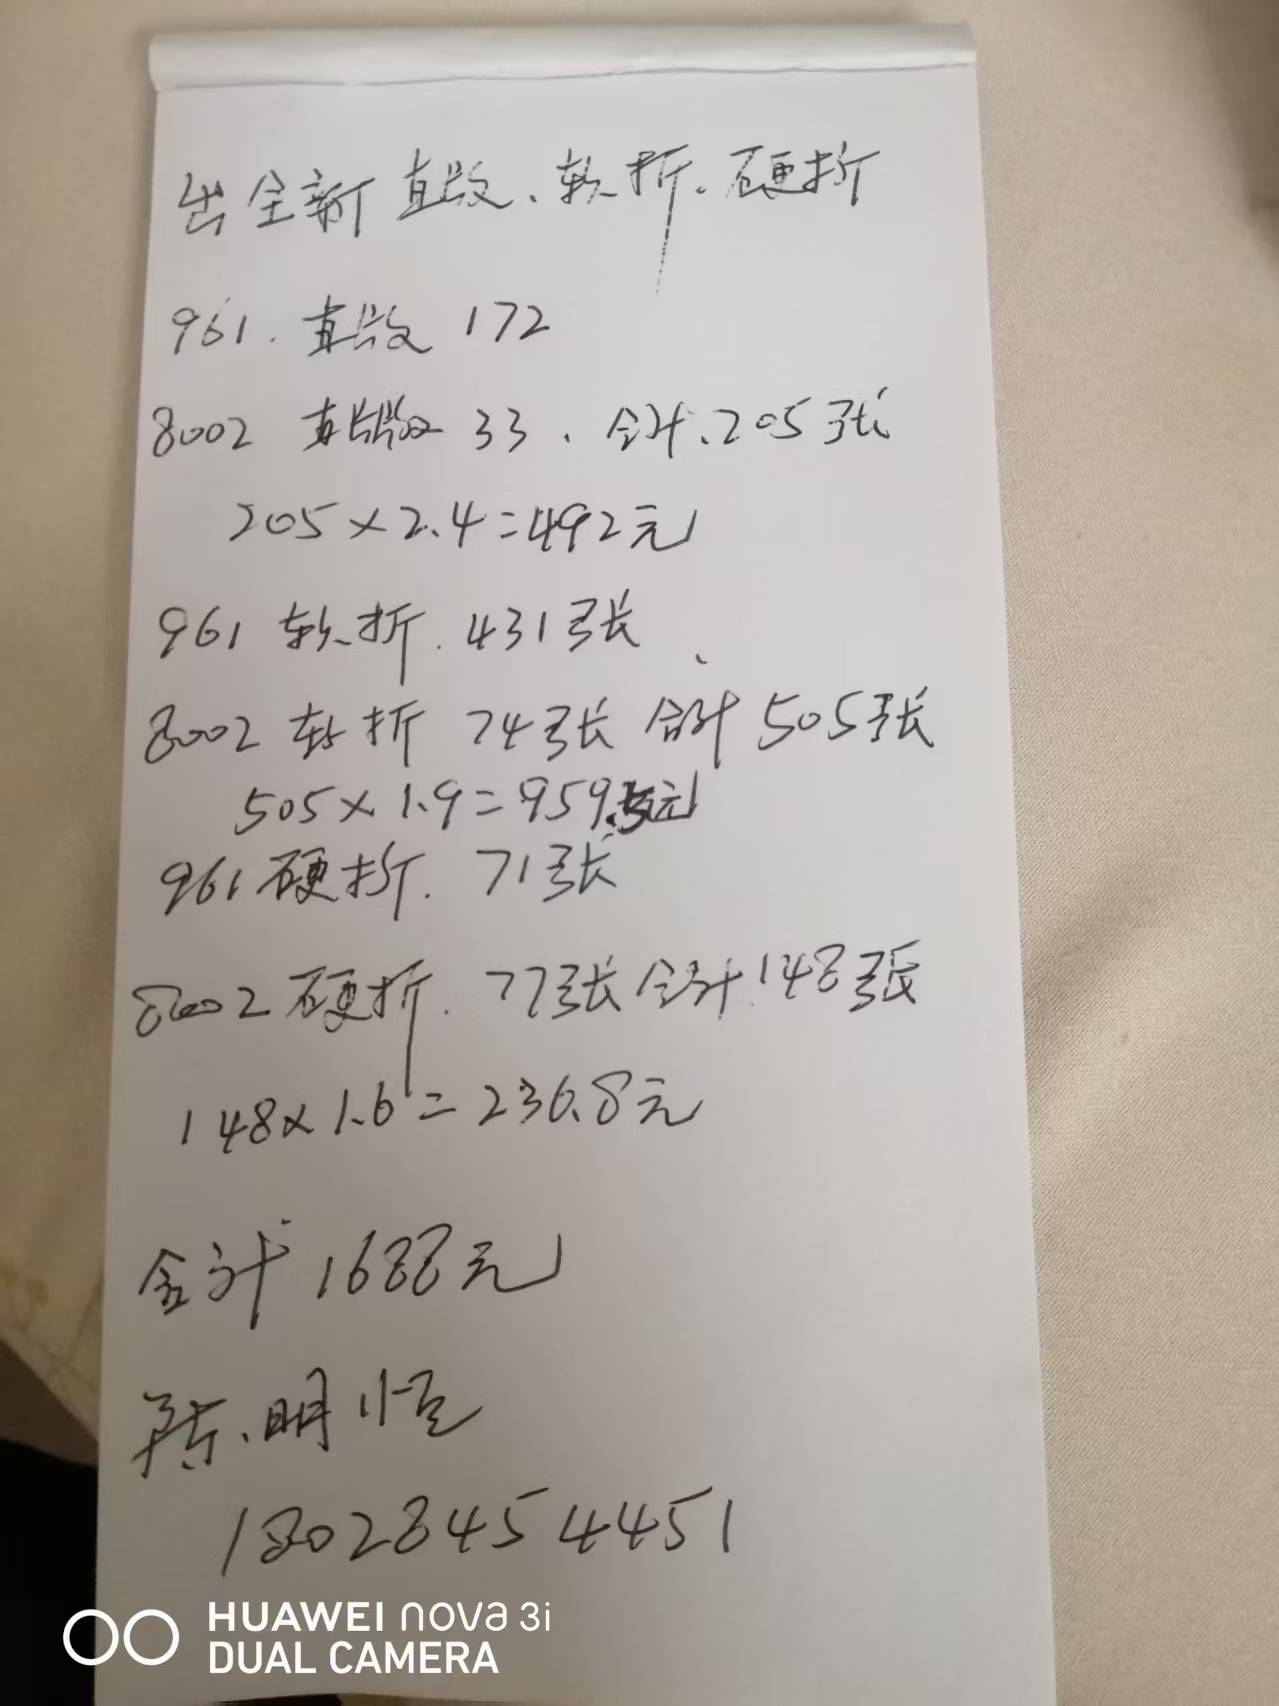 出全新直版、软折、硬折
961. 直版 172
8002 直版 33、合计、205张
205×2.4=492元
961 软折. 431张
8002 软折 74张 合计 505张
505×1.9=959.5元
961硬折. 71张
8002硬折. 77张合计.148张
148×1.6=236.8元
合计 1688元
陈、明恒
18028454451
HUAWEI nova 3i
DUAL CAMERA